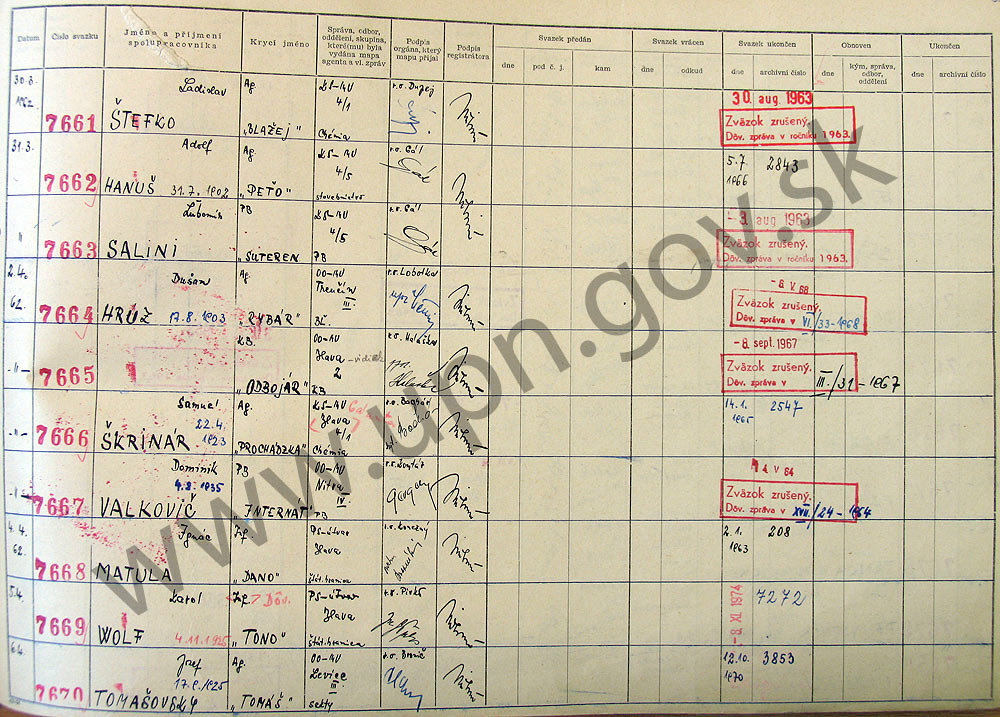 Datum
Číslo svazku
Jméno a příjmení
spolupracovníka
Krycí jméno
Správa, odbor,
oddělení, skupina,
které(mu) byla
vydána mapa
agenta a vl. zpráv
Podpis
orgána, který
mapu přijal
Podpis
registrátora
Svazek předán
dne
pod č. j.
kam
Svazek vrácen
dne
odkud
Svazek ukončen
dne
archivní číslo
Obnoven
dne
kým, správa,
odbor,
oddělení
Ukončen
dne
archivní číslo
30.3.
1962
7661
Ladislav
ŠTEFKO
Ag.
"BLAŽEJ"
KS-MV
4/1
Chémia
30. aug. 1963
Zväzok zrušený.
Dôv. zpráva v ročníku 1963.
31.3.
7662
Adolf
HANUŠ 31.7.1902
Ag.
"PEŤO"
KS-MV
4/5
stavebníctvo
r.s. Gál
5.7.
1966
2843
"
7663
Ľubomír
SALINI
PB
"SUTEREN
KS-MV
4/5
PB
r.s. Gál
-3. aug 1963
Zväzok zrušený.
Dôv. zpráva v ročníku 1963.
2.4.
62.
7664
Dušan
HRUŽ 17.8.1903
Ag.
"RYBÁR"
OO-MV
Trenčín
III.
r.s. Lobotka
-6. V. 68
Zväzok zrušený.
Dôv. zpráva v VI./33-1968
-"-
7665
KB.
"ODBOJÁR"
OO-MV
Ilava
2
KB
-8. sept. 1967
Zväzok zrušený.
Dôv. zpráva v III./31-1967
-"-
7666
Samuel
22.4.
1923
ŠKRINÁR
Ag.
"PROCHÁDZKA"
KS-MV
Ilava
4/1
Chémia
14.1.
1965
2547
-"-
7667
Dominik
4.8.1935
VALKOVIČ
PB
"INTERNÁT"
OO-MV
Nitra
IV
PB
14. V. 64
Zväzok zrušený.
Dôv. zpráva v XVII./24-1964
4.4.
62.
7668
Ignác
MATULA
Inf.
"DANO"
PS-útvar
Ilava
štát.hranica
2.1.
1963
208
5.4.
7669
Karol
WOLF 4.11.1925
Inf. Dôv.
"TONO"
PS-útvar
Ilava
štát.hranica
r.s. Pirk
-8. XI. 1974
7272
6.4.
7670
Jozef
17.6.1925
TOMAŠOVSKY
Ag.
"TOMÁŠ"
OO-MV
Levice
III.
sekty
12.10.
1970
3853
www.upn.gov.sk